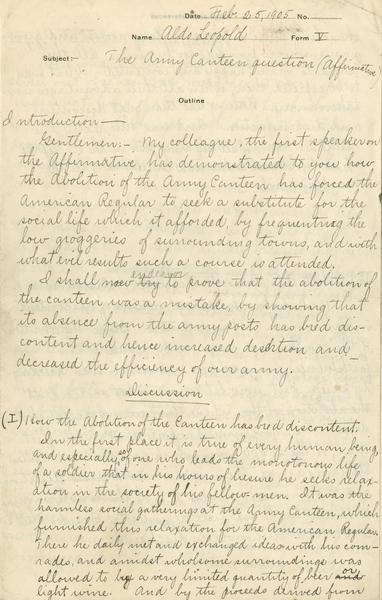 Date Feb 25, 1905 No.
Name Aldo Leopold Form V
Subject:- The Army Canteen question (Affirmative)
Outline
Introduction—
Gentlemen:- My colleague, the first speaker on
the Affirmative, has demonstrated to you how
the Abolition of the Army Canteen has forced the
American Regular to seek a substitute for the
social life which it afforded, by frequenting the
low groggeries of surrounding towns, and with
what evil results such a course is attended.
endeavor
I shall now try to prove that the abolition of
the canteen was a mistake, by showing that
its absence from the army posts has bred dis-
content and hence increased desertion and
decreased the efficiency of our army.
Discussion
(I) How the Abolition of the Canteen has bred discontent.
In the first place it is true of every human being,
and especially so of one who leads the monotonous life
of a soldier that in his hours of liesure he seeks relax-
ation in the society of his fellow-men. It was the
harmless social gatherings at the Army Canteen, which
furnished this relaxation for the American Regular.
There he daily met and exchanged ideas with his com-
rades, and amidst wholsome surroundings was
allowed to buy a very limited quantity of beer and or
light wine. And by the proceeds derived from